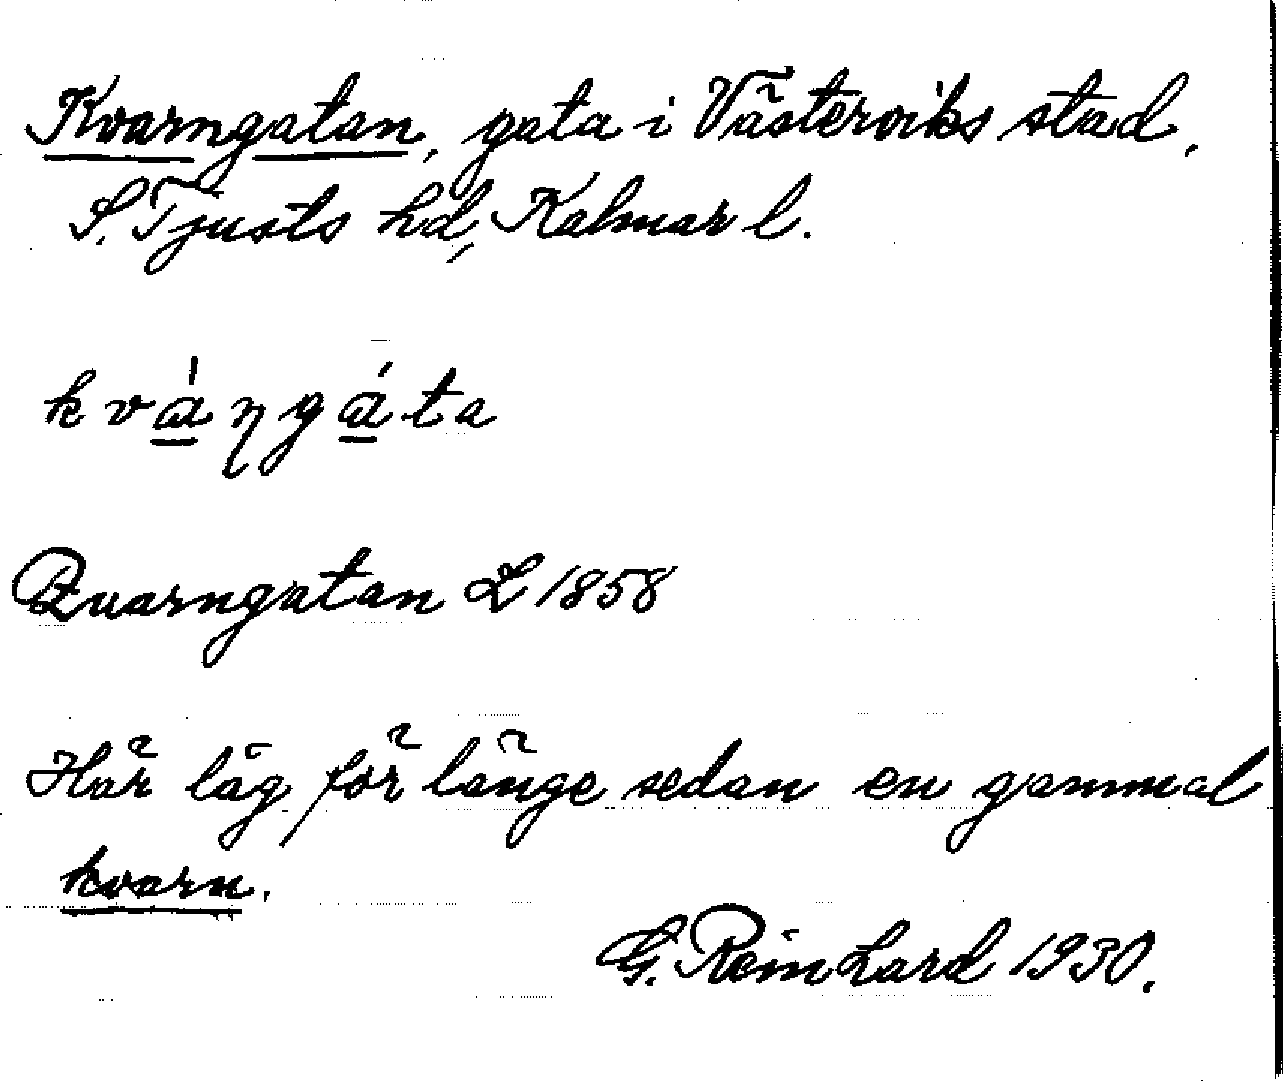 Kvarngatan, gata i Västerviks stad,
S. Tjusts hd, Kalmar l.
kvàngáta
Quarngatan L 1858
Här låg för länge sedan en gammal
kvarn.
G. Reinhard 1930.